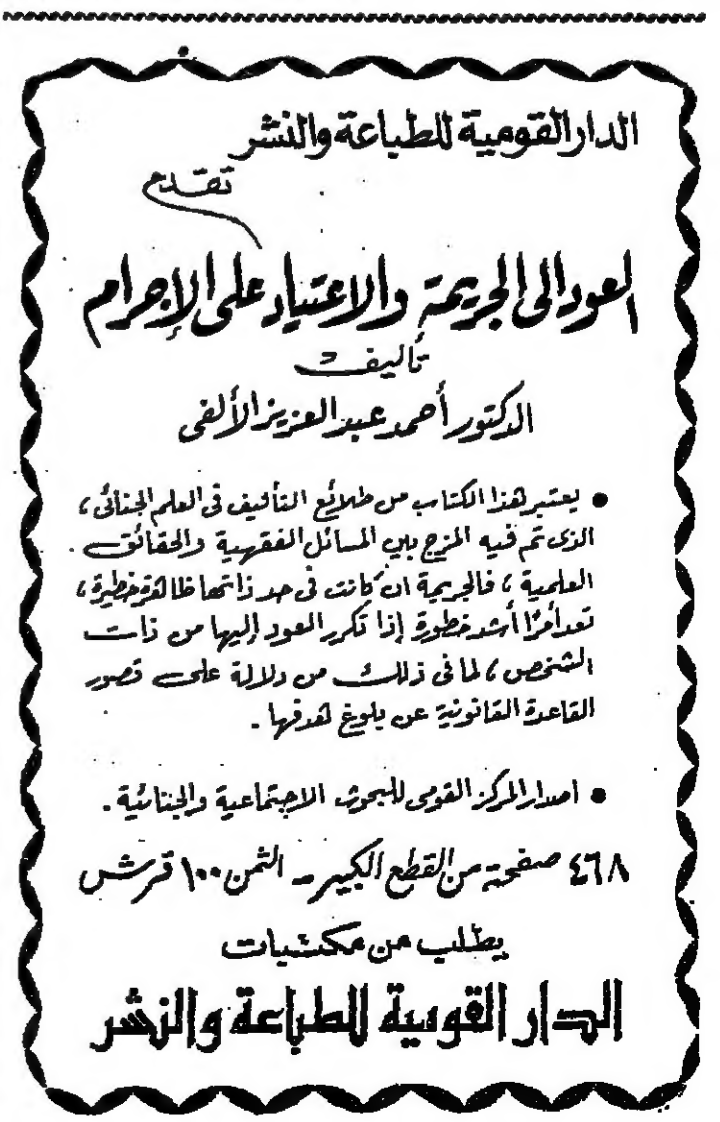 الدار القومية للطباعة والنشر
تقدم
العود الى الجريمة والاعتياد على الإجرام
تأليف
الدكتور أحمد عبد العزيز الألفى
• يعتبر هذا الكتاب من طلائع التأليف فى العلم الجنائى ،
الذى تم فيه المزج بين المسائل الفقهية والحقائق
العلمية ، فالجريمة ان كانت فى حد ذاتها ظاهرة خطيرة ،
تعد أمرًا أشد خطورة إذا تكرر العود إليها من ذات
الشخص ، لما فى ذلك من دلالة على قصور
القاعدة القانونية عن بلوغ هدفها .
• اصدار المركز القومى للبحوث الاجتماعية والجنائية .
٤٦٨ صفحة من القطع الكبير - الثمن ١٠٠ قرش
يطلب من مكتبات
الدار القومية للطباعة والنشر